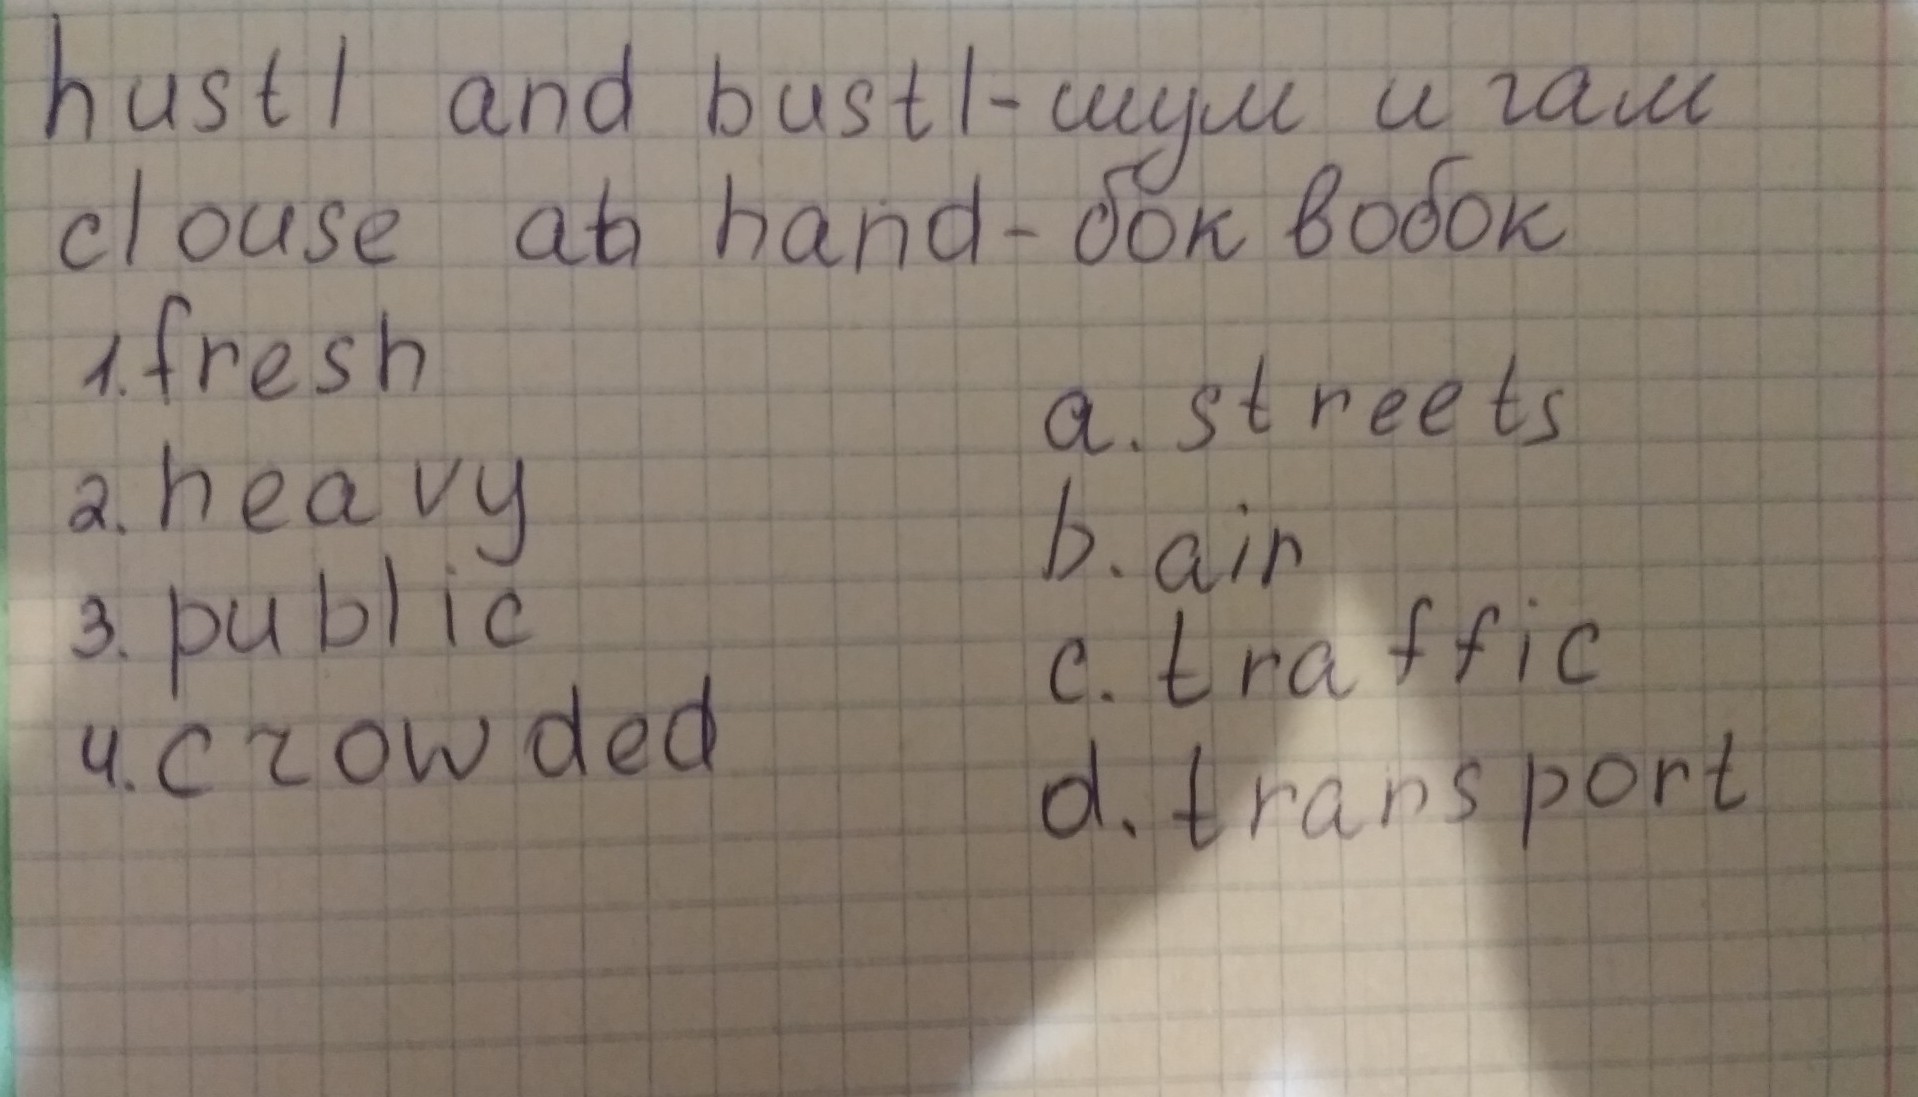 hustl and bustl-шум и гам
clouse at hand-бок вобок
1. fresh
a. streets
2. heavy
b. air
3. public
c. traffic
4. crowded
d. transport